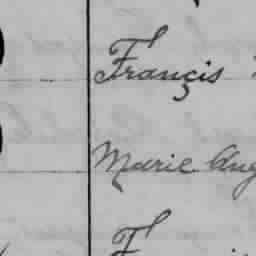 Français
Marie Aug
F